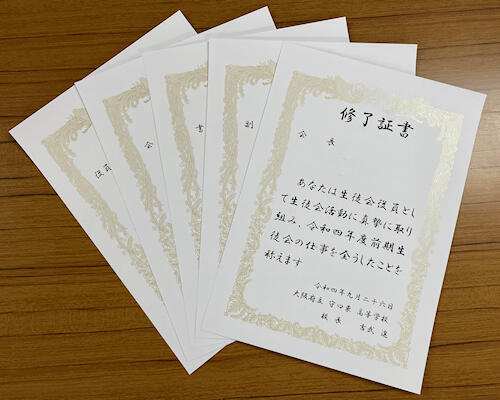 修了証書
会長
あなたは生徒会役員とし
て生徒会活動に真摯に取り
組み、令和四年度前期生
徒会の仕事を全うしたことを
称えます
令和四年九月二十六日
大阪府立 守口東 高等学校
校長 吉武 進
副
書
会
役員